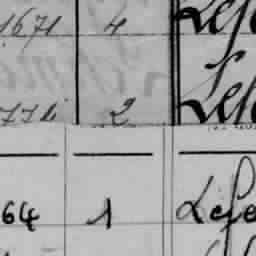 1671 4 Lefe
2 Lefe
64 1 Lefe